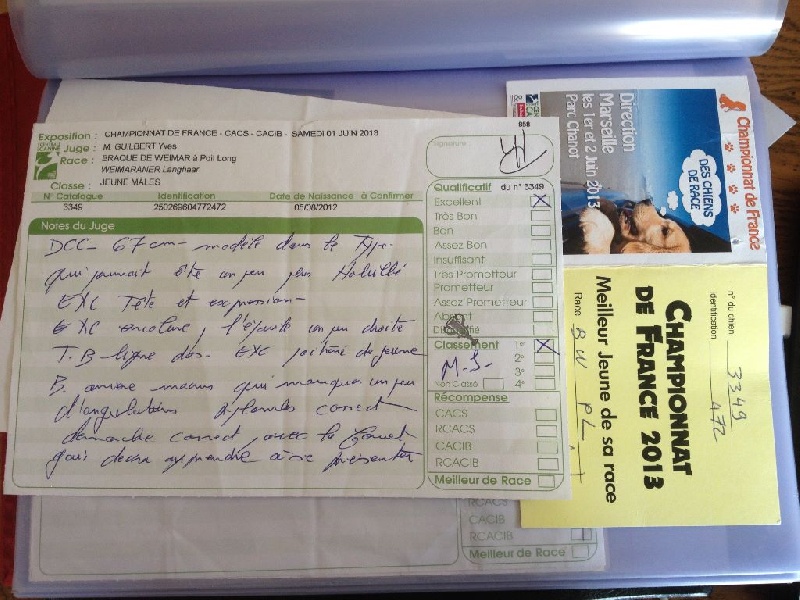 Exposition : CHAMPIONNAT DE FRANCE - CACS - CACIB - SAMEDI 01 JUIN 2013
Juge : M. GUILBERT Yves
Race : BRAQUE DE WEIMAR à Poil Long
WEIMARANER Langhaar
Classe : JEUNE MALES
N° Catalogue Identification Date de Naissance à Confirmer
3349 250269604772472 05/08/2012
Notes du Juge
DCC - 67 cm - modèle dans le Type
qui pourrait être un peu plus
EXC Tête et expression -
EXC encolure, l'épaule un peu droite
T.B ligne dos - EXC poitrine
B. arrière mains qui manque un peu
d'angulations aplombs correct
démarche correct avec le
qui devra apprendre à se présenter
858
signature
Qualificatif du n° 3349
Excellent
Très Bon
Bon
Assez Bon
Insuffisant
Très Prometteur
Prometteur
Assez Prometteur
Absent
Disqualifié
Classement 1er
2e
3e
Non Classé 4e
M.J.
Récompense
CACS
RCACS
CACIB
RCACIB
Meilleur de Race
RCACS
CACIB
RCACIB
Meilleur de Race
Direction
Marseille
les 1er et 2 juin 2013
Parc Chanot
DES CHIENS
DE RACE
Championnat de France
n° du chien 3349
identification 472
CHAMPIONNAT
DE FRANCE 2013
Meilleur Jeune de sa race
Race BW PL